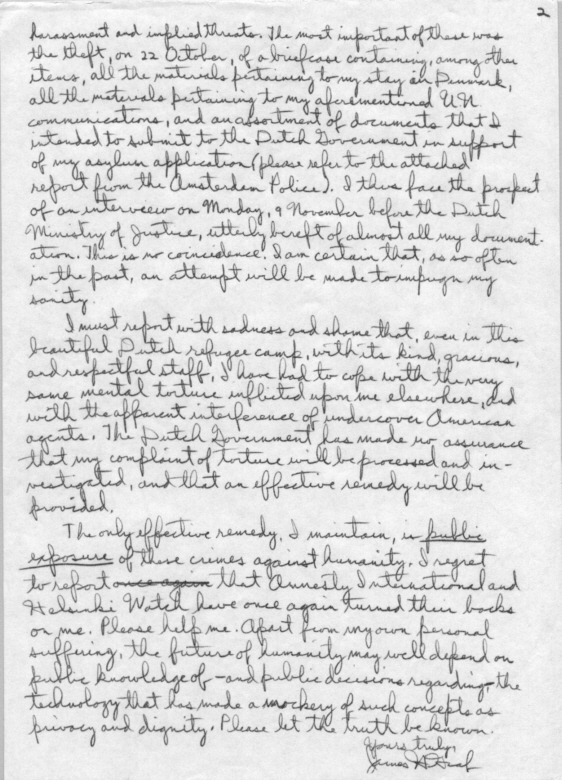 2
harassment and implied threats. The most important of these was
the theft, on 22 October, of a briefcase containing, among other
items, all the materials pertaining to my stay in Denmark,
all the materials pertaining to my aforementioned U.N.
communications, and an assortment of documents that I
intended to submit to the Dutch Government in support
of my asylum application (please refer to the attached
report from the Amsterdam Police). I thus face the prospect
of an interview on Monday, 9 November before the Dutch
Ministry of Justice, utterly bereft of almost all my document-
ation. This is no coincidence. I am certain that, as so often
in the past, an attempt will be made to impugn my
sanity.
I must report with sadness and shame that, even in this
beautiful Dutch refugee camp, with its kind, gracious,
and respectful staff, I have had to cope with the very
same mental torture inflicted upon me elsewhere, and
with the apparent interference of undercover American
agents. The Dutch Government has made no assurance
that my complaint of torture will be processed and in-
vestigated, and that an effective remedy will be
provided.
The only effective remedy, I maintain, is public
exposure of these crimes against humanity. I regret
to report once again that Amnesty International and
Helsinki Watch have once again turned their backs
on me. Please help me. Apart from my own personal
suffering, the future of humanity may well depend on
public knowledge of - and public decisions regarding - the
technology that has made a mockery of such concepts as
privacy and dignity. Please let the truth be known.
Yours truly,
James H. Graf